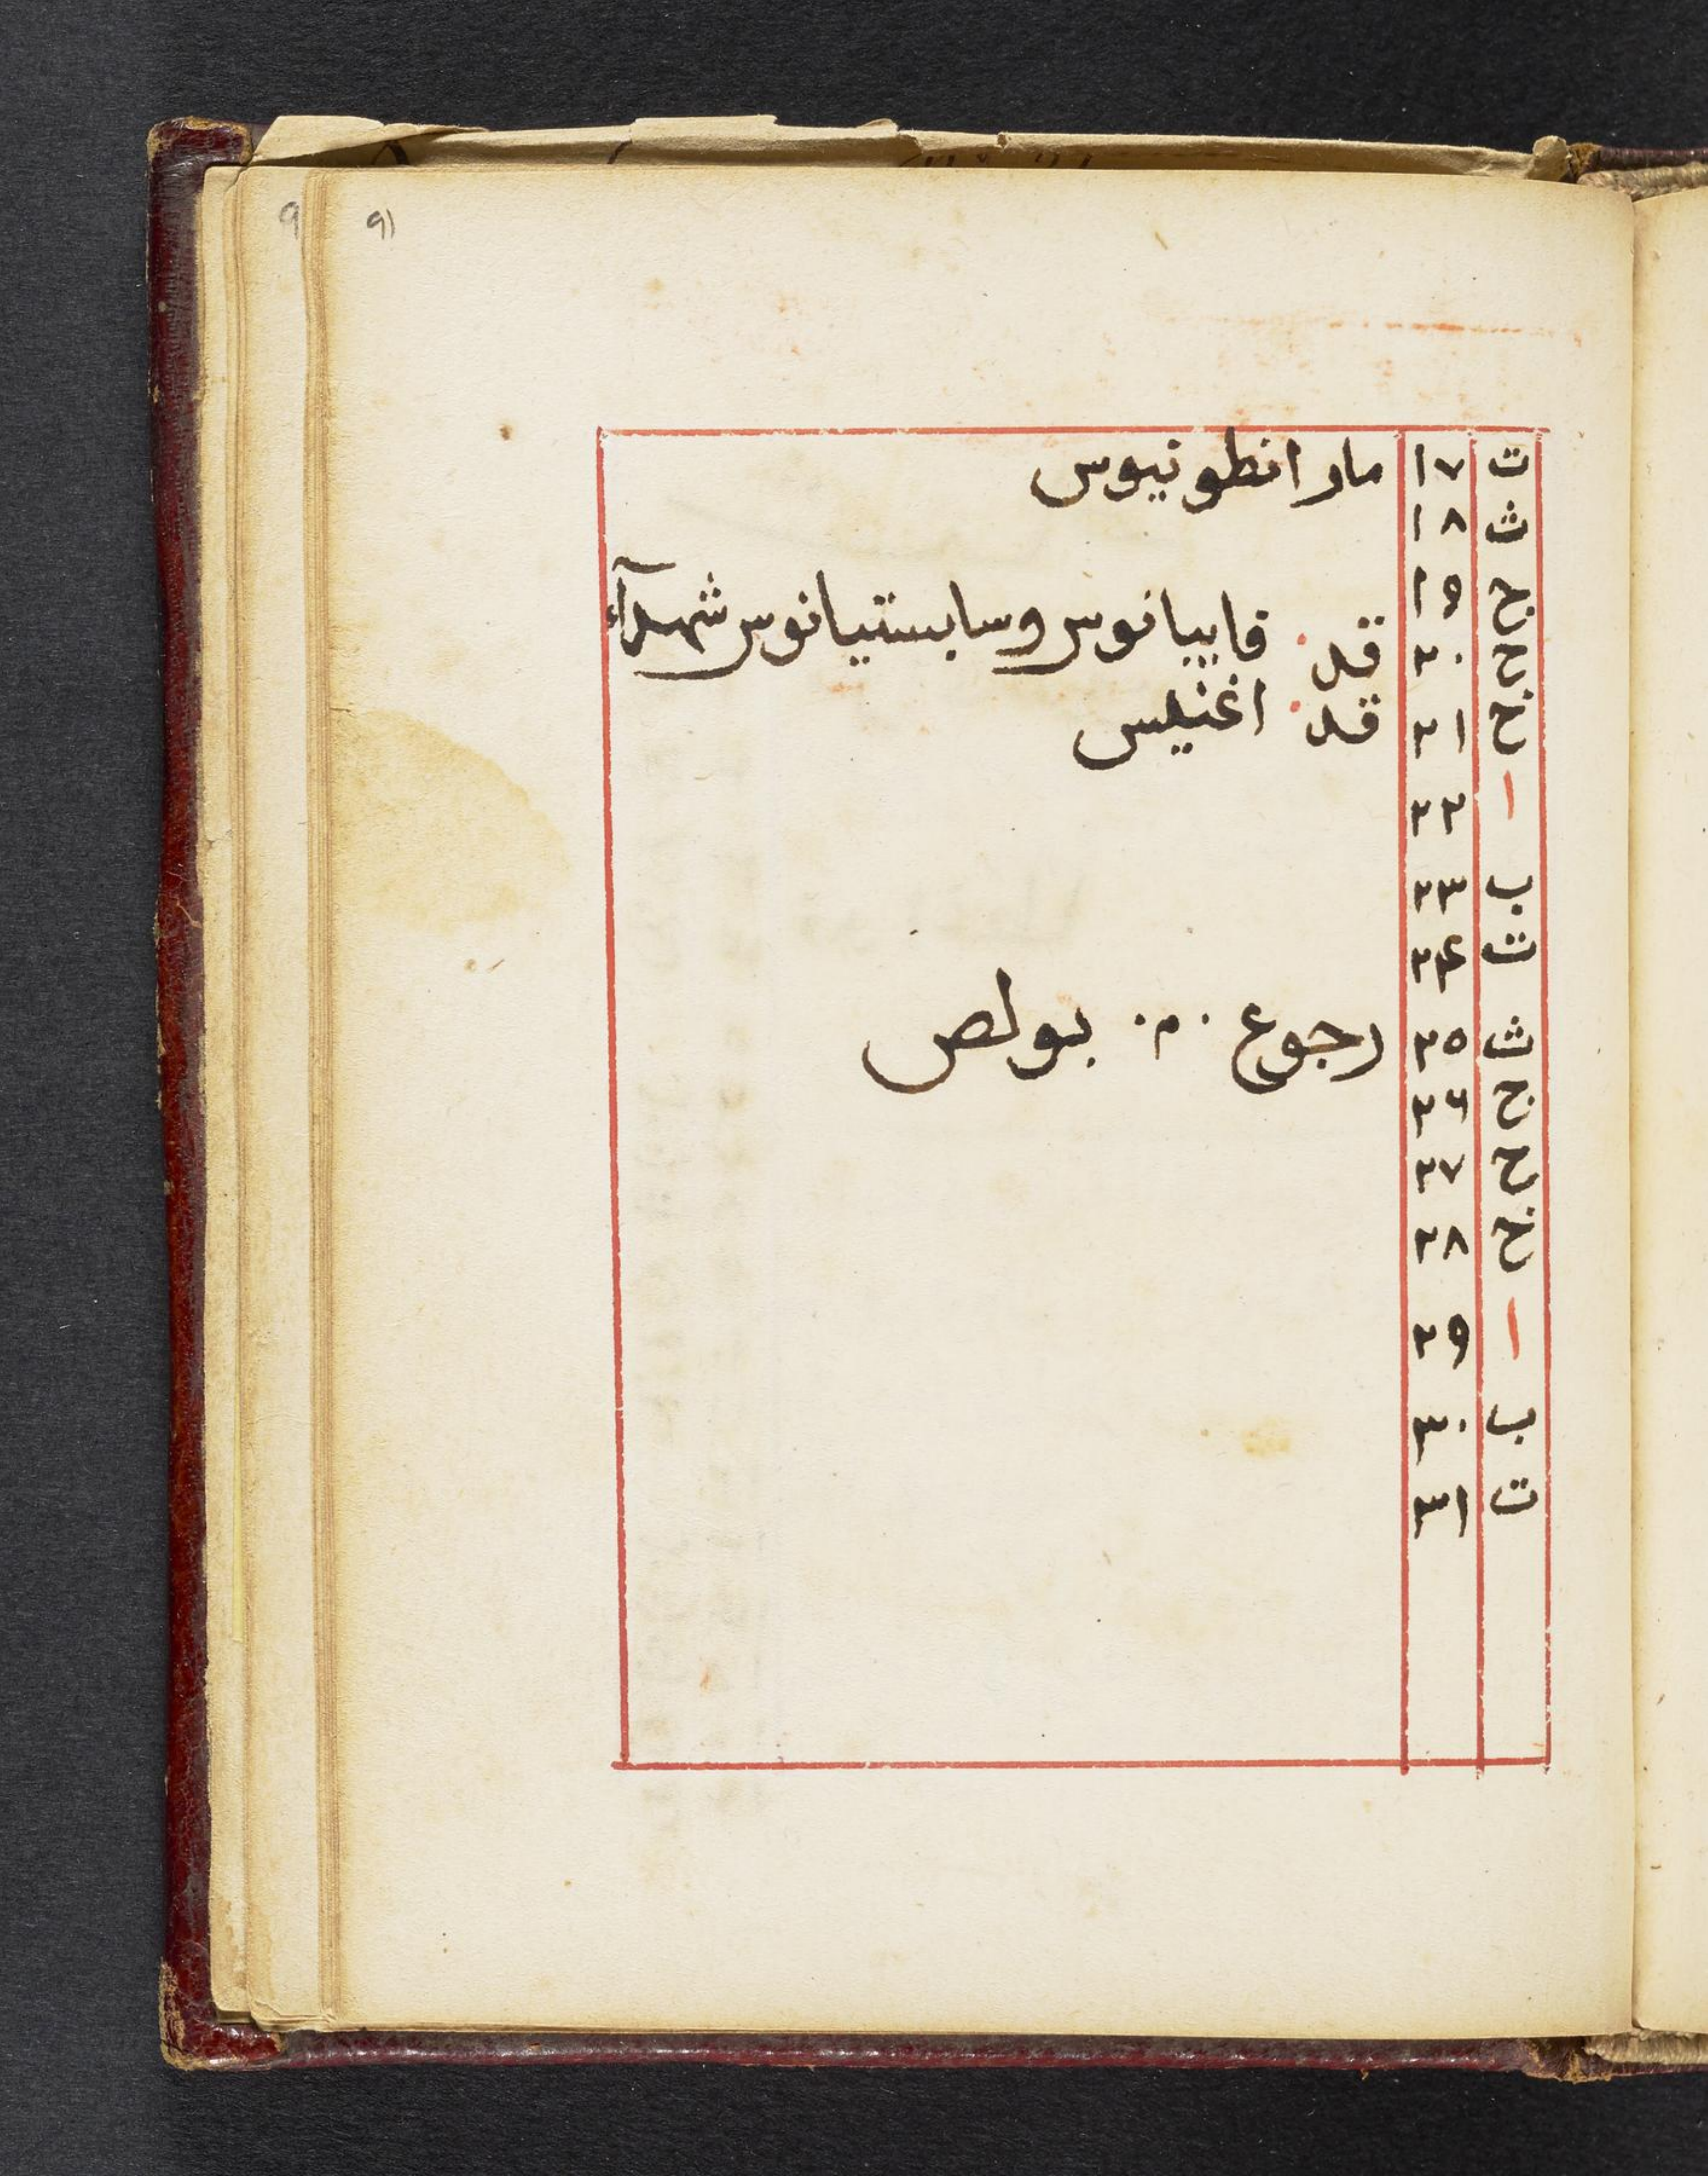 9 91
ت ١٧ مار انطونيوس
ث ١٨
ج ١٩
ح ٢٠ قد فابيانوس وسابستيانوس شهدآء
خ ٢١ قد اغنيس
ا ٢٢
ب ٢٣
ت ٢٤
ث ٢٥ رجوع ٠م٠ بولص
ج ٢٦
ح ٢٧
خ ٢٨
ا ٢٩
ب ٣٠
ت ٣١